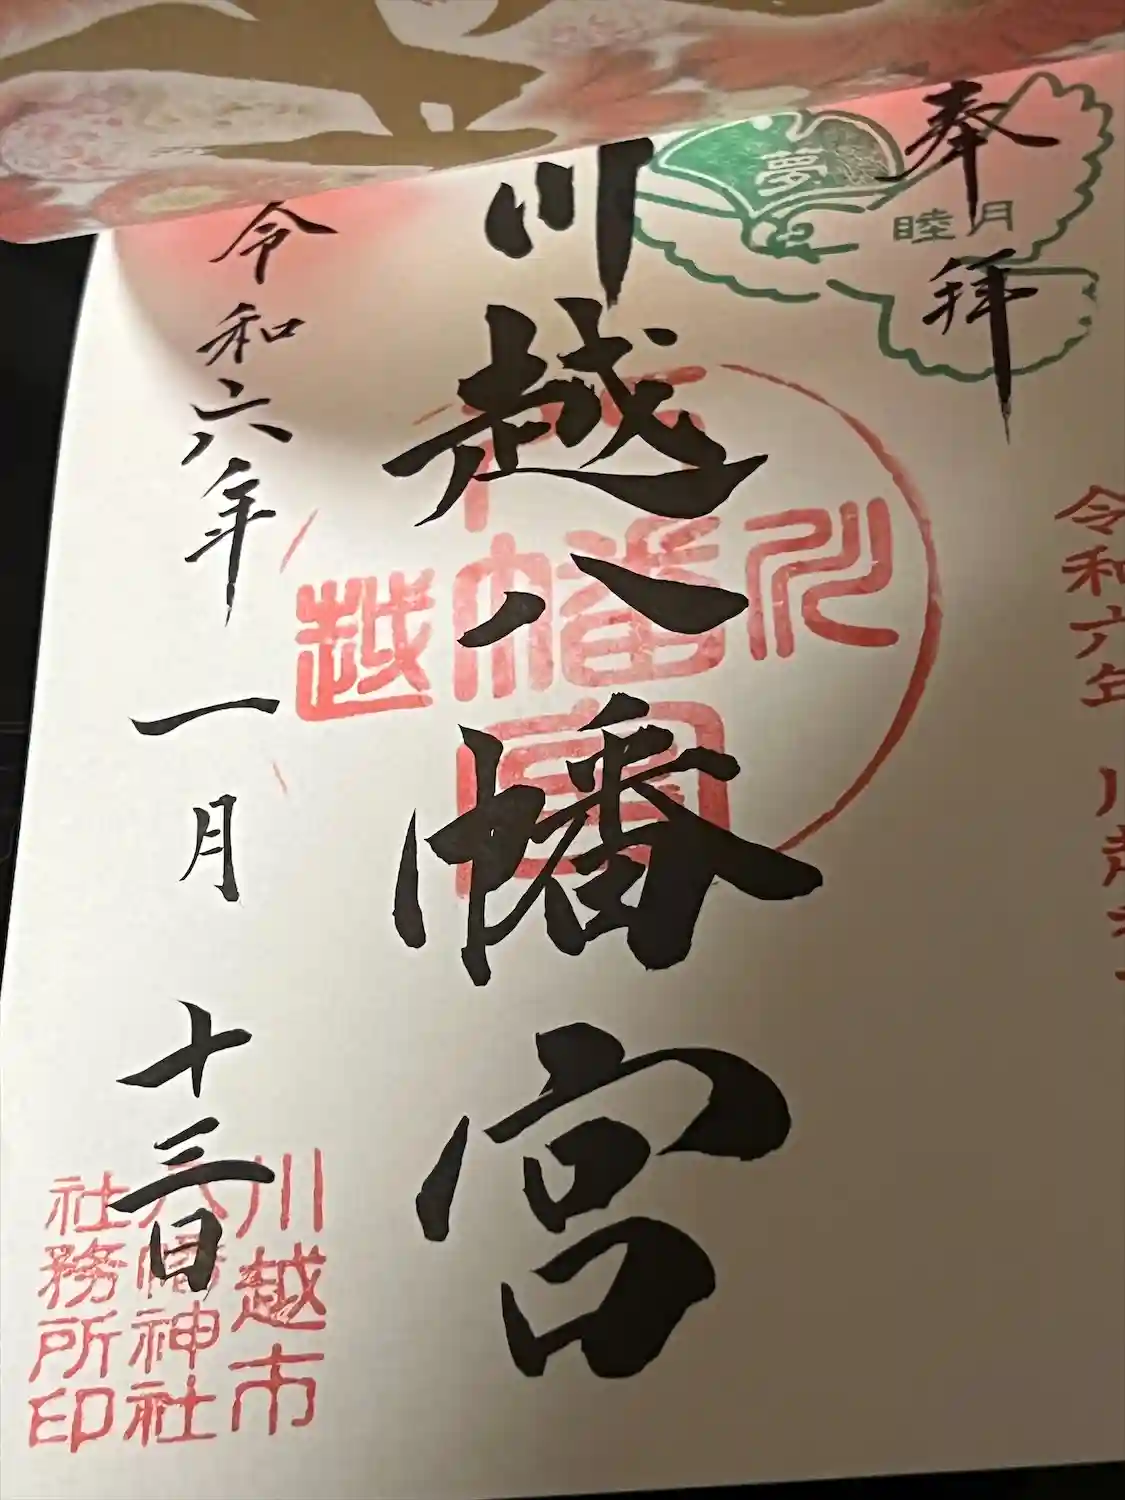 奉拝
夢
睦月
川越八幡宮
川越
八幡宮
令和六年一月十三日
川越市
八幡神社
社務所印
令和六年